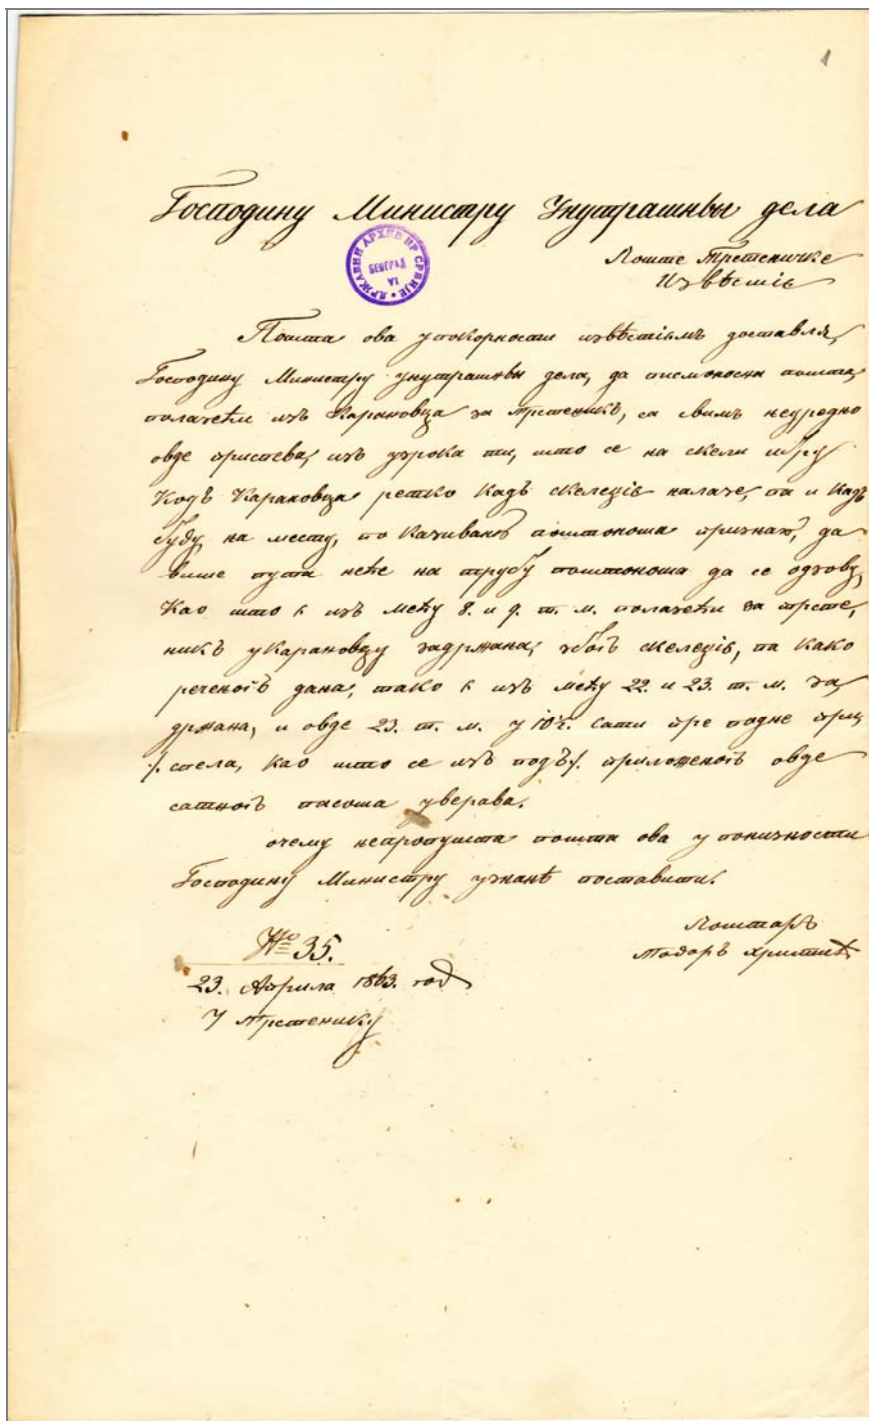 1
Господину Министру Унутрашньы дела
Поште Трстеничке
Извѣстіе
ДРЖАВНИ АРХИВ НР СРБИЈЕ
БЕОГРАД
Пошта ова упокорности извѣстіемъ доставля,
Господину Министру унутрашньы дела, да писмоносна пошта,
полазећи изъ Карановца за Трстеникъ, са свимъ неуредно
овде приспева, изъ узрока ти, што се на скели
Кодъ Карановца редко кадъ скелеџіе налазе, па и кадъ
буду на месту, по казивању поштоноша признаю, да
више пута неће на трубу поштоноша да се одзову,
Као што є изъ међу 8. и 9. т. м. полазећи за Трсте,
никъ у Карановцу задржана, збогъ скелеџіе, па како
реченогъ дана, тако є изъ међу 22. и 23. т. м. за,
држана, и овде 23. т. м. у 10½. сати пре подне при,
./. спела, као што се изъ подъ./. приложеногъ овде
сатногъ пасоша уверава.
очему непропушта пошта ова у понизности
Господину Министру узнанѣ поставити.
Поштаръ
Тодоръ Христић
№ 35.
23. Априла 1863. год
У Трстенику